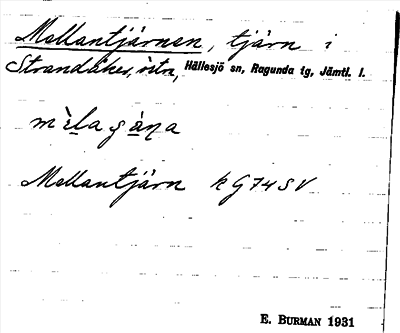 Mellantjärnen, tjärn i
Strandåker, östn, Hällesjö sn, Ragunda tg, Jämtl. l.
mèlagàṇa
Mellantjärn kG74SV
E. BURMAN 1931